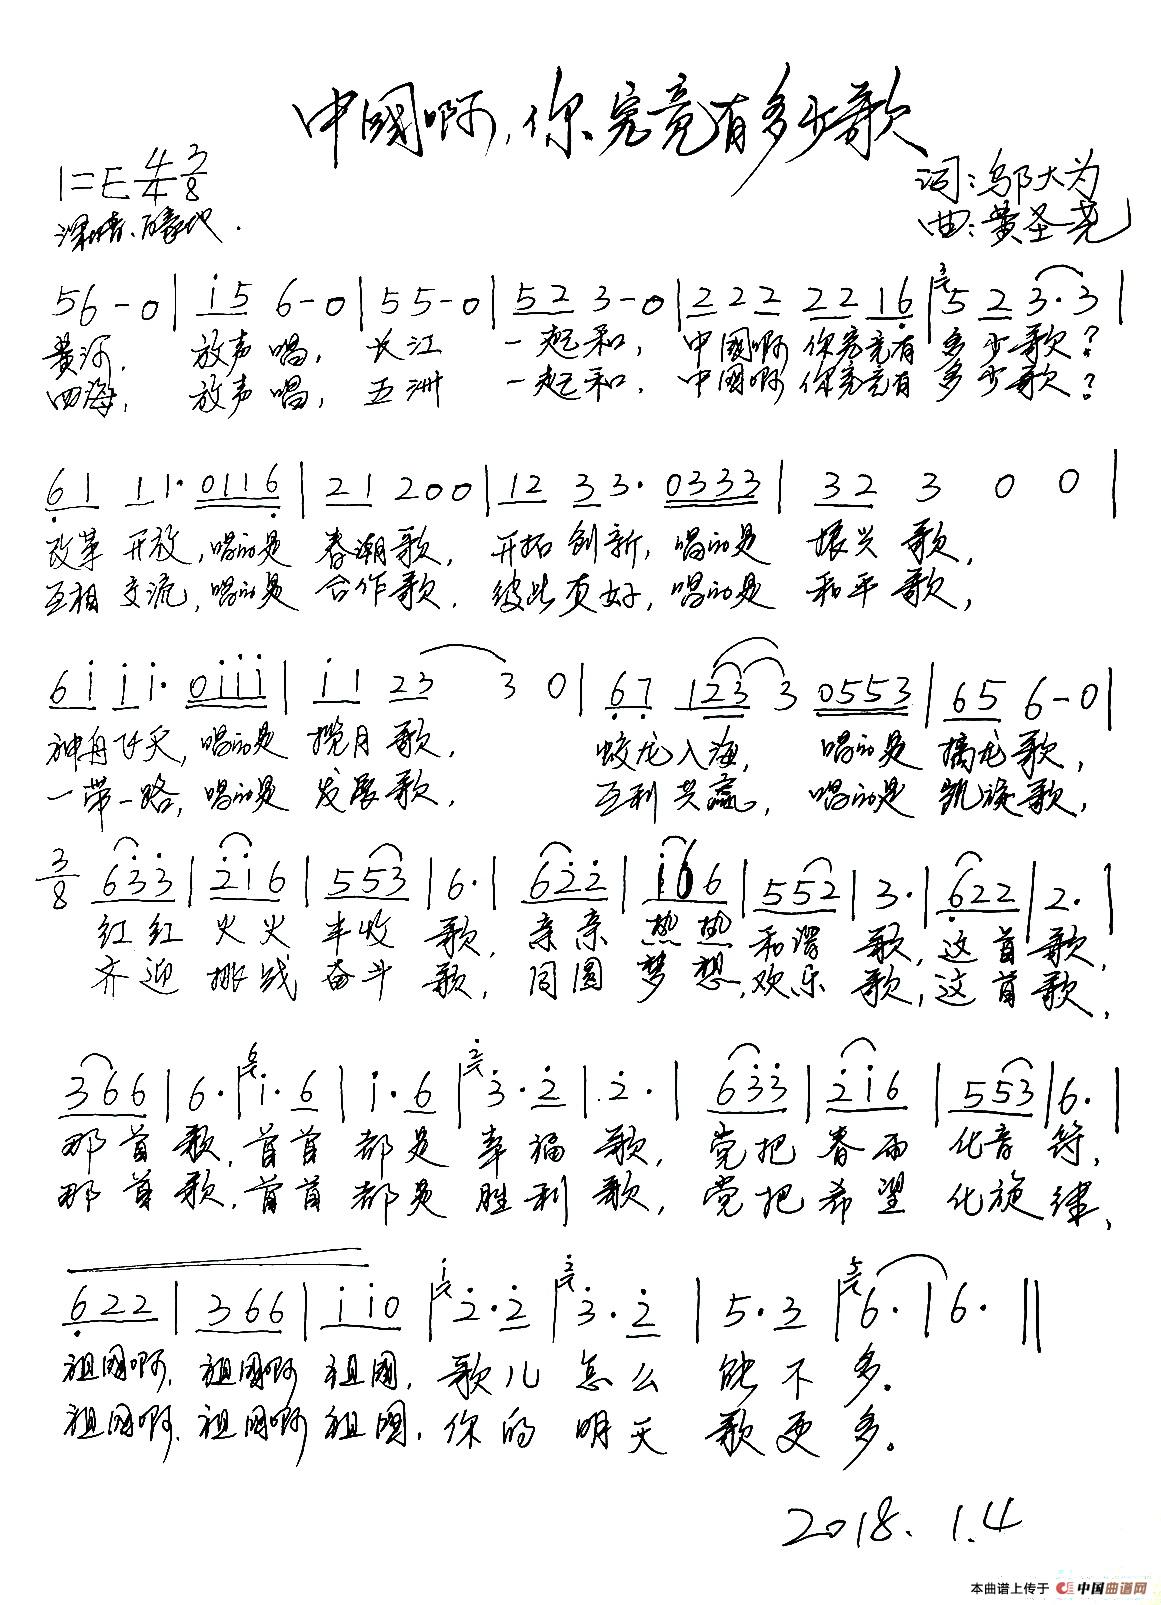 中國啊,你究竟有多少歌
1=E 4/4 3/8
词:邬大为
深情、豪地.
曲:黄圣尧
56-0| i5 6-0|55-0|52 3-0|222 2216|5 2 3·3|
黄河, 放声唱, 长江 一起和, 中國啊 你究竟有 多少歌?
四海, 放声唱, 五洲 一起和, 中國啊 你究竟有 多少歌?
61 11· 0116|21 200|12 33· 0333|32 3 0 0|
改革 开放, 唱的是 春潮歌, 开拓 创新, 唱的是 振兴歌,
互相 交流, 唱的是 合作歌, 彼此友好, 唱的是 和平歌,
6i ii· 0iii|i1 23 3 0|67 123 3 0553|65 6-0|
神舟飞天, 唱的是 揽月歌, 蛟龙入海, 唱的是 擒龙歌,
一带一路, 唱的是 发展歌, 互利共赢, 唱的是 凯旋歌,
3/8 633|2i6|553|6·|622|i66|552|3·|622|2·|
红红 火火 丰收 歌, 亲亲 热热 和谐 歌, 这首歌,
齐迎 挑战 奋斗 歌, 同圆 梦想, 欢乐 歌, 这首歌,
366|6·|i·6|i·6|3·2|2·|633|2i6|553|6·|
那首歌, 首首 都是 幸福 歌, 党把 春雨 化音符,
那首歌, 首首 都是 胜利 歌, 党把 希望 化旋律,
622|366|ii0|2·2|3·2|5·3|6·|6·||
祖國啊, 祖國啊 祖國, 歌儿 怎么 能不多。
祖國啊, 祖國啊 祖國, 你的 明天 歌更多。
2018.1.4
本曲谱上传于 中国曲谱网